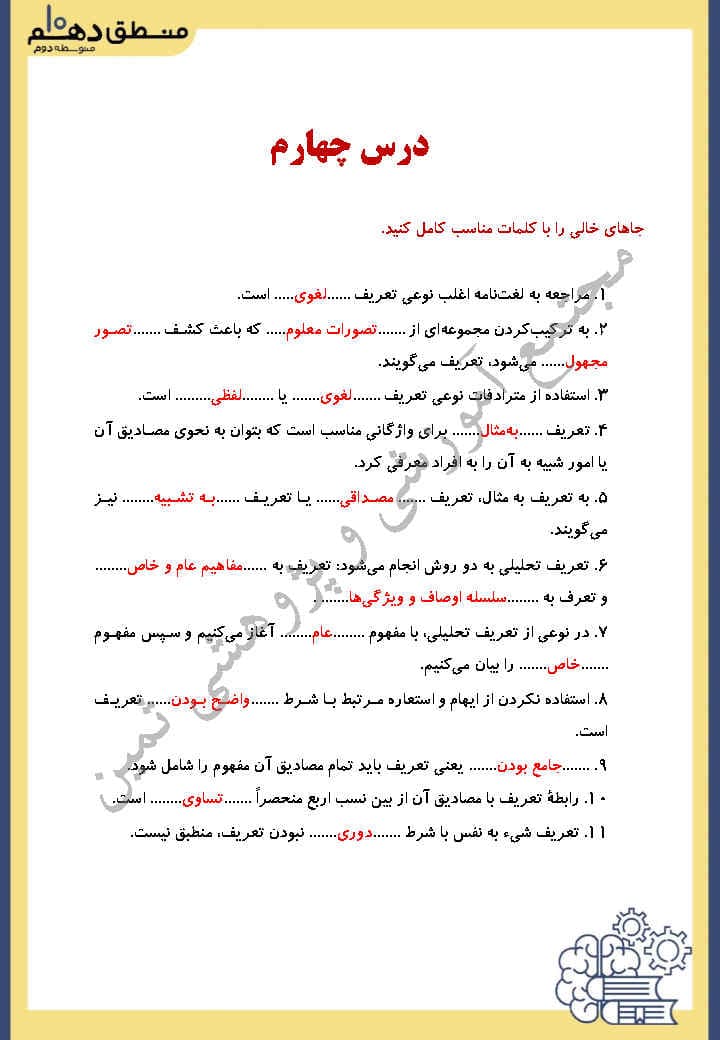 منطق دهم ۱۰
متوسطه دوم
درس چهارم
جاهای خالی را با کلمات مناسب کامل کنید.
۱. مراجعه به لغت‌نامه اغلب نوعی تعریف ......لغوی..... است.
۲. به ترکیب‌کردن مجموعه‌ای از .......تصورات معلوم..... که باعث کشف .......تصور
مجهول...... می‌شود، تعریف می‌گویند.
۳. استفاده از مترادفات نوعی تعریف .......لغوی....... یا ........لفظی......... است.
۴. تعریف ......به‌مثال....... برای واژگانی مناسب است که بتوان به نحوی مصادیق آن
یا امور شبیه به آن را به افراد معرفی کرد.
۵. به تعریف به مثال، تعریف ....... مصداقی...... یا تعریف ......به تشبیه........ نیز
می‌گویند.
۶. تعریف تحلیلی به دو روش انجام می‌شود: تعریف به ......مفاهیم عام و خاص........
و تعرف به ........سلسله اوصاف و ویژگی‌ها....... .
۷. در نوعی از تعریف تحلیلی، با مفهوم ........عام........ آغاز می‌کنیم و سپس مفهوم
.......خاص....... را بیان می‌کنیم.
۸. استفاده نکردن از ایهام و استعاره مرتبط با شرط .......واضح بودن...... تعریف
است.
۹. .......جامع بودن....... یعنی تعریف باید تمام مصادیق آن مفهوم را شامل شود.
۱۰. رابطهٔ تعریف با مصادیق آن از بین نسب اربع منحصراً .......تساوی........ است.
۱۱. تعریف شیء به نفس با شرط .......دوری....... نبودن تعریف، منطبق نیست.
مجتمع آموزشی و پژوهشی ثمین